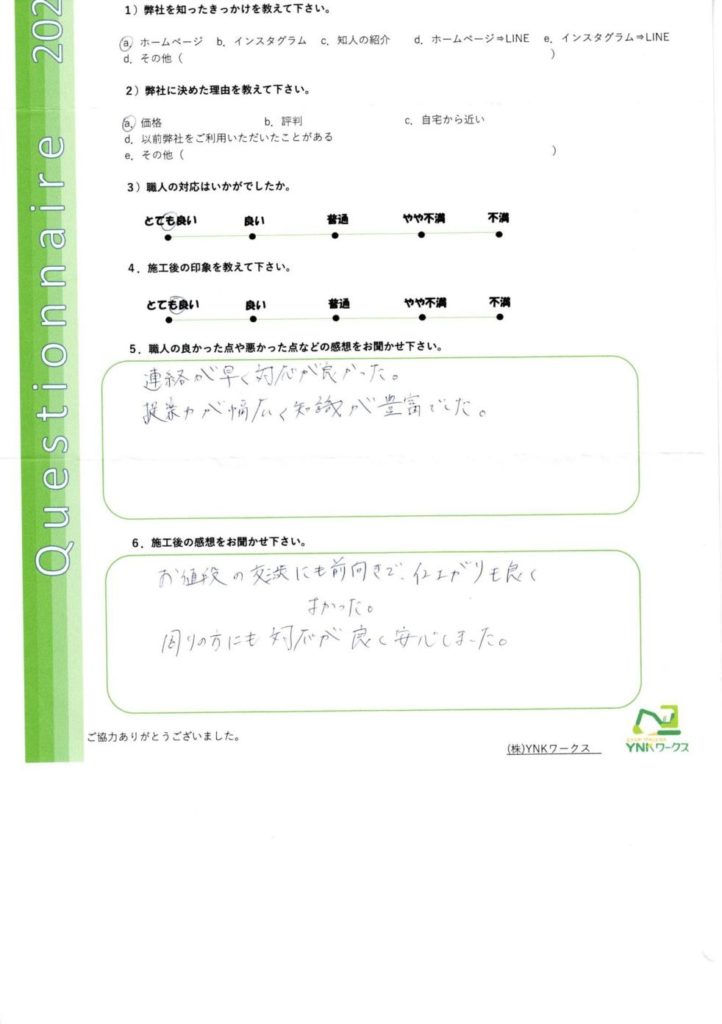 Questionnaire 202
1）弊社を知ったきっかけを教えて下さい。
a．ホームページ b．インスタグラム c．知人の紹介 d．ホームページ⇒LINE e．インスタグラム⇒LINE
d．その他（ ）
2）弊社に決めた理由を教えて下さい。
a．価格 b．評判 c．自宅から近い
d．以前弊社をご利用いただいたことがある
e．その他（ ）
3）職人の対応はいかがでしたか。
とても良い 良い 普通 やや不満 不満
4．施工後の印象を教えて下さい。
とても良い 良い 普通 やや不満 不満
5．職人の良かった点や悪かった点などの感想をお聞かせ下さい。
連絡が早く対応が良かった。
提案力が幅広く知識が豊富でした。
6．施工後の感想をお聞かせ下さい。
お値段の交渉にも前向きで、仕上がりも良く
よかった。
周りの方にも対応が良く安心しました。
ご協力ありがとうございました。
(株)YNKワークス
YNKワークス